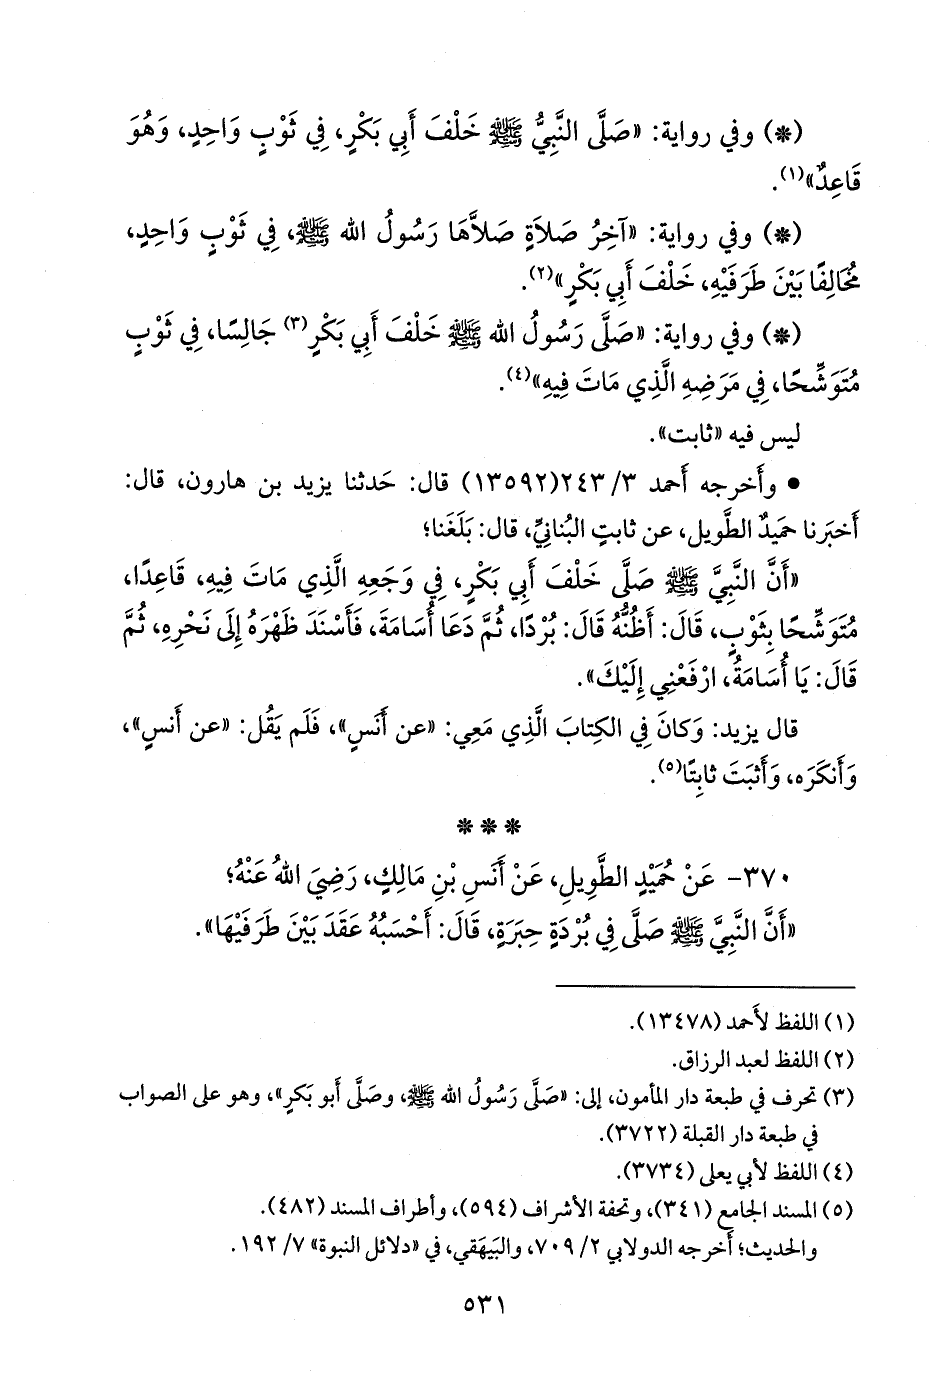 (*) وفي رواية: «صَلَّى النَّبِيُّ ﷺ خَلْفَ أَبِي بَكْرٍ، فِي ثَوْبٍ وَاحِدٍ، وَهُوَ
قَاعِدٌ»(١).
(*) وفي رواية: «آخِرُ صَلاَةٍ صَلاَّهَا رَسُولُ الله ﷺ، فِي ثَوْبٍ وَاحِدٍ،
مُخَالِفًا بَيْنَ طَرَفَيْهِ، خَلْفَ أَبِي بَكْرٍ»(٢).
(*) وفي رواية: «صَلَّى رَسُولُ الله ﷺ خَلْفَ أَبِي بَكْرٍ(٣) جَالِسًا، فِي ثَوْبٍ
مُتَوَشِّحًا، فِي مَرَضِهِ الَّذِي مَاتَ فِيهِ»(٤).
ليس فيه «ثابت».
• وأَخرجه أَحمد ٣/ ٢٤٣(١٣٥٩٢) قال: حَدثنا يزيد بن هارون، قال:
أَخبَرنا حُميدٌ الطَّويل، عن ثابتٍ البُنانيِّ، قال: بَلَغَنا؛
«أَنَّ النَّبِيَّ ﷺ صَلَّى خَلْفَ أَبِي بَكْرٍ، فِي وَجَعِهِ الَّذِي مَاتَ فِيهِ، قَاعِدًا،
مُتَوَشِّحًا بِثَوْبٍ، قَالَ: أَظُنُّهُ قَالَ: بُرْدًا، ثُمَّ دَعَا أُسَامَةَ، فَأَسْنَدَ ظَهْرَهُ إِلَى نَحْرِهِ، ثُمَّ
قَالَ: يَا أُسَامَةُ، ارْفَعْنِي إِلَيْكَ».
قال يزيد: وَكانَ فِي الكِتابَ الَّذِي مَعِي: «عن أَنَسٍ»، فَلَم يَقُل: «عن أَنسٍ»،
وَأَنكَرَه، وَأَثبَتَ ثابِتًا(٥).
* * *
٣٧٠- عَنْ حُمَيْدٍ الطَّوِيلِ، عَنْ أَنَسِ بْنِ مَالِكٍ، رَضِيَ اللهُ عَنْهُ؛
«أَنَّ النَّبِيَّ ﷺ صَلَّى فِي بُرْدَةٍ حِبَرَةٍ، قَالَ: أَحْسَبُهُ عَقَدَ بَيْنَ طَرَفَيْهَا».
(١) اللفظ لأَحمد (١٣٤٧٨).
(٢) اللفظ لعبد الرزاق.
(٣) تحرف في طبعة دار المأمون، إلى: «صَلَّى رَسُولُ الله ﷺ، وصَلَّى أَبو بَكرٍ»، وهو على الصواب
في طبعة دار القبلة (٣٧٢٢).
(٤) اللفظ لأبي يعلى (٣٧٣٤).
(٥) المسند الجامع (٣٤١)، وتحفة الأشراف (٥٩٤)، وأطراف المسند (٤٨٢).
والحديث؛ أَخرجه الدولابي ٢/ ٧٠٩، والبَيهَقي، في «دلائل النبوة» ٧/ ١٩٢.
٥٣١